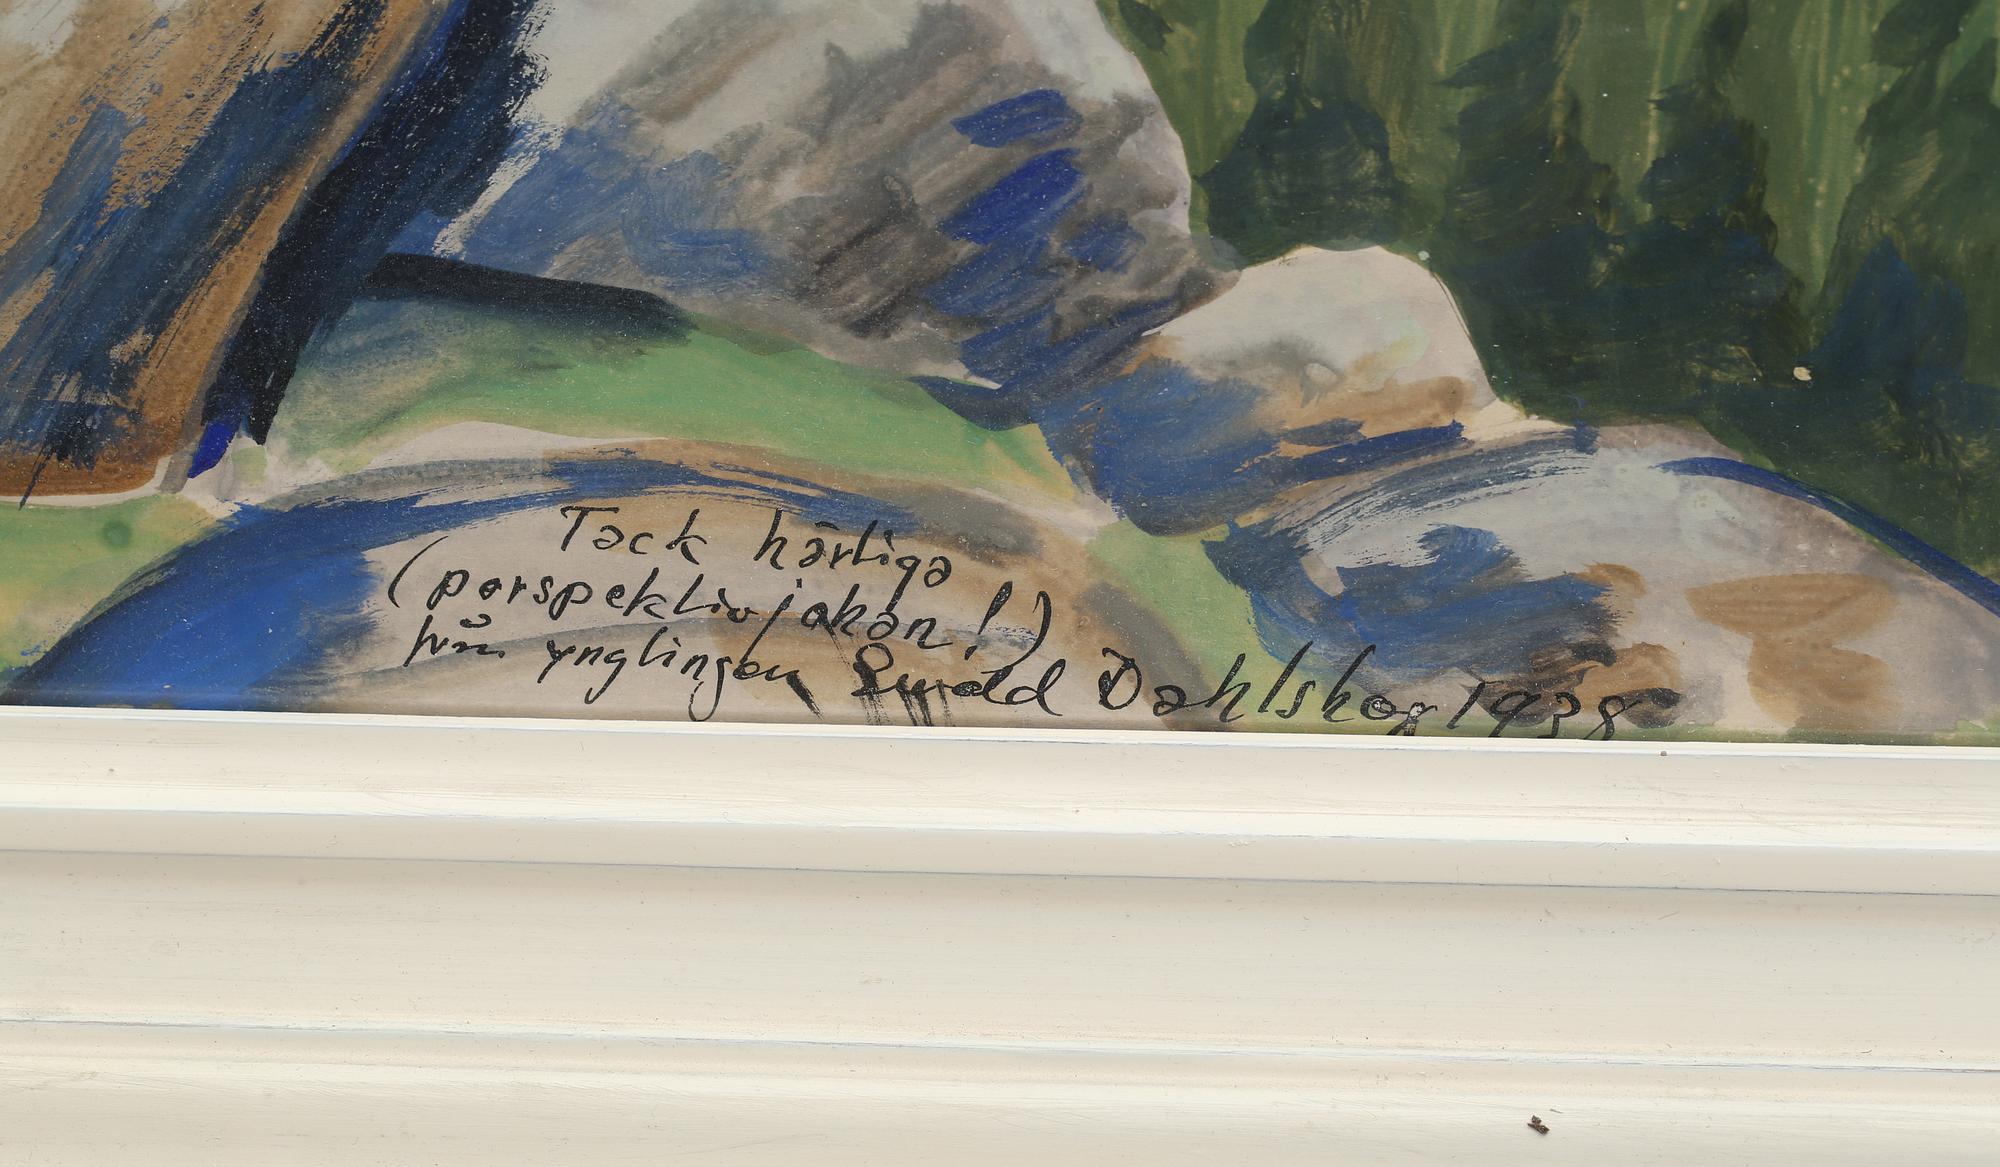 Tack härliga
(perspektivjaken!)
från ynglingen Ewald Dahlskog 1938